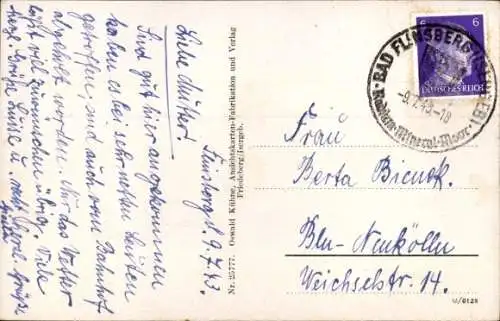 Flinsberg, d. 9.7.43.
Liebe Mutter!
Sind gut hier angekommen
haben es bei sehr netten Leuten
getroffen, sind auch vom Bahnhof
abgeholt worden. Nur das Wetter
läßt viel zu wünschen übrig. Viele
herzl. Grüße Luise u.
Nr. 25777. Oswald Kühne, Ansichtskarten-Fabrikation und Verlag
Friedeberg/Isergeb.
6 6
DEUTSCHES REICH
BAD FLINSBERG (ISERGEB)
-9.7.43-18
Radium-Mineral-Moor-
Frau
Berta Bienek.
Bln-Neukölln
Weichselstr. 14.
U/0128